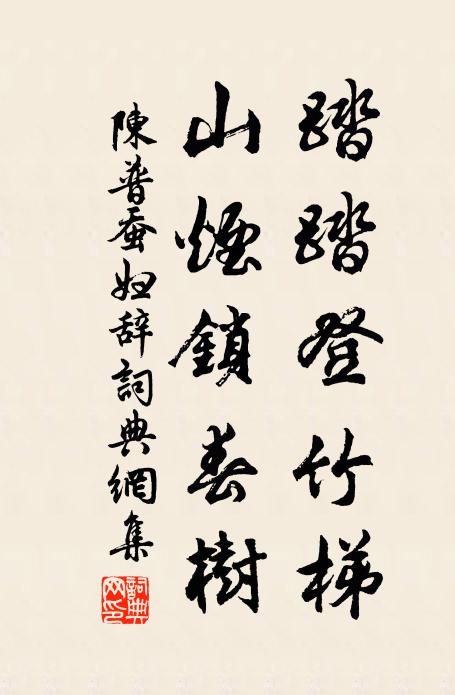 踏踏登竹梯
山煙鎖春樹
陳普蚕妇辞詞典網集
詞典
网印